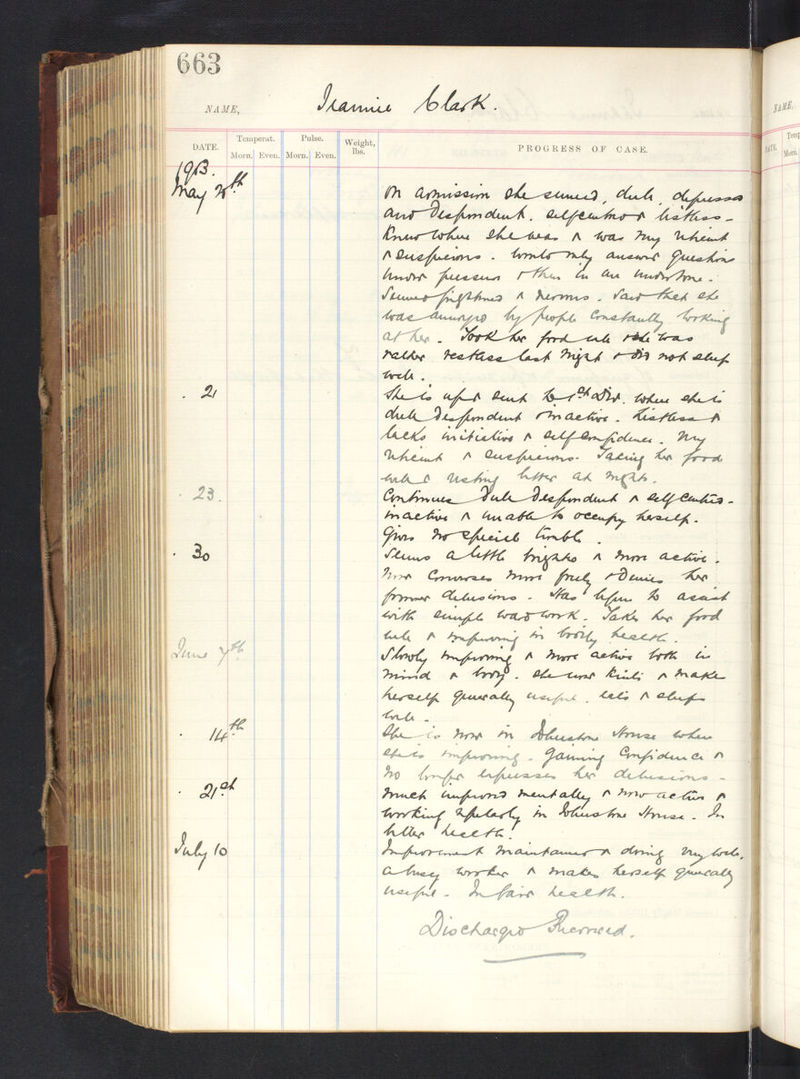 663
NAME, Jeannie Clark.
DATE. Temperat. Pulse. Weight, lbs. PROGRESS OF CASE.
Morn. Even. Morn. Even.
1913.
May 20th On admission she seemed, dull, depressed
and despondent. selfcentred & listless -
Knew where she was & was very reticent
& suspicious. would only answer questions
under pressure & then in an undertone.
Seemed frightened & nervous. Said that she
was annoyed by people constantly looking
at her. Took her food well & she was
rather restless last night & did not sleep
well.
. 21 She is up & sent to 1st Div. where she is
dull despondent & inactive. Listless &
lacks initiative & selfconfidence. Very
reticent & suspicious. Taking her food
well & resting better at night.
. 23. Continues dull despondent & selfcentred -
inactive & unable to occupy herself.
Gives no special trouble.
. 30 Seems a little brighter & more active.
Now converses more freely & denies her
former delusions. Has begun to assist
with simple ward work. Takes her food
well & improving in bodily health.
June 7th Slowly improving & more active both in
mind & body. She now knits & makes
herself generally useful. eats & sleeps
well.
. 14th She is now in Johnstone House where
she is improving. Gaining confidence &
no longer expresses her delusions -
. 21st Much improved mentally & now active &
working regularly in Johnstone House. In
better health.
July 10 Improvement maintained & doing very well.
a busy worker & makes herself generally
useful. In fair health.
Discharged Recovered.
NAME,
DATE. Temp
Morn.